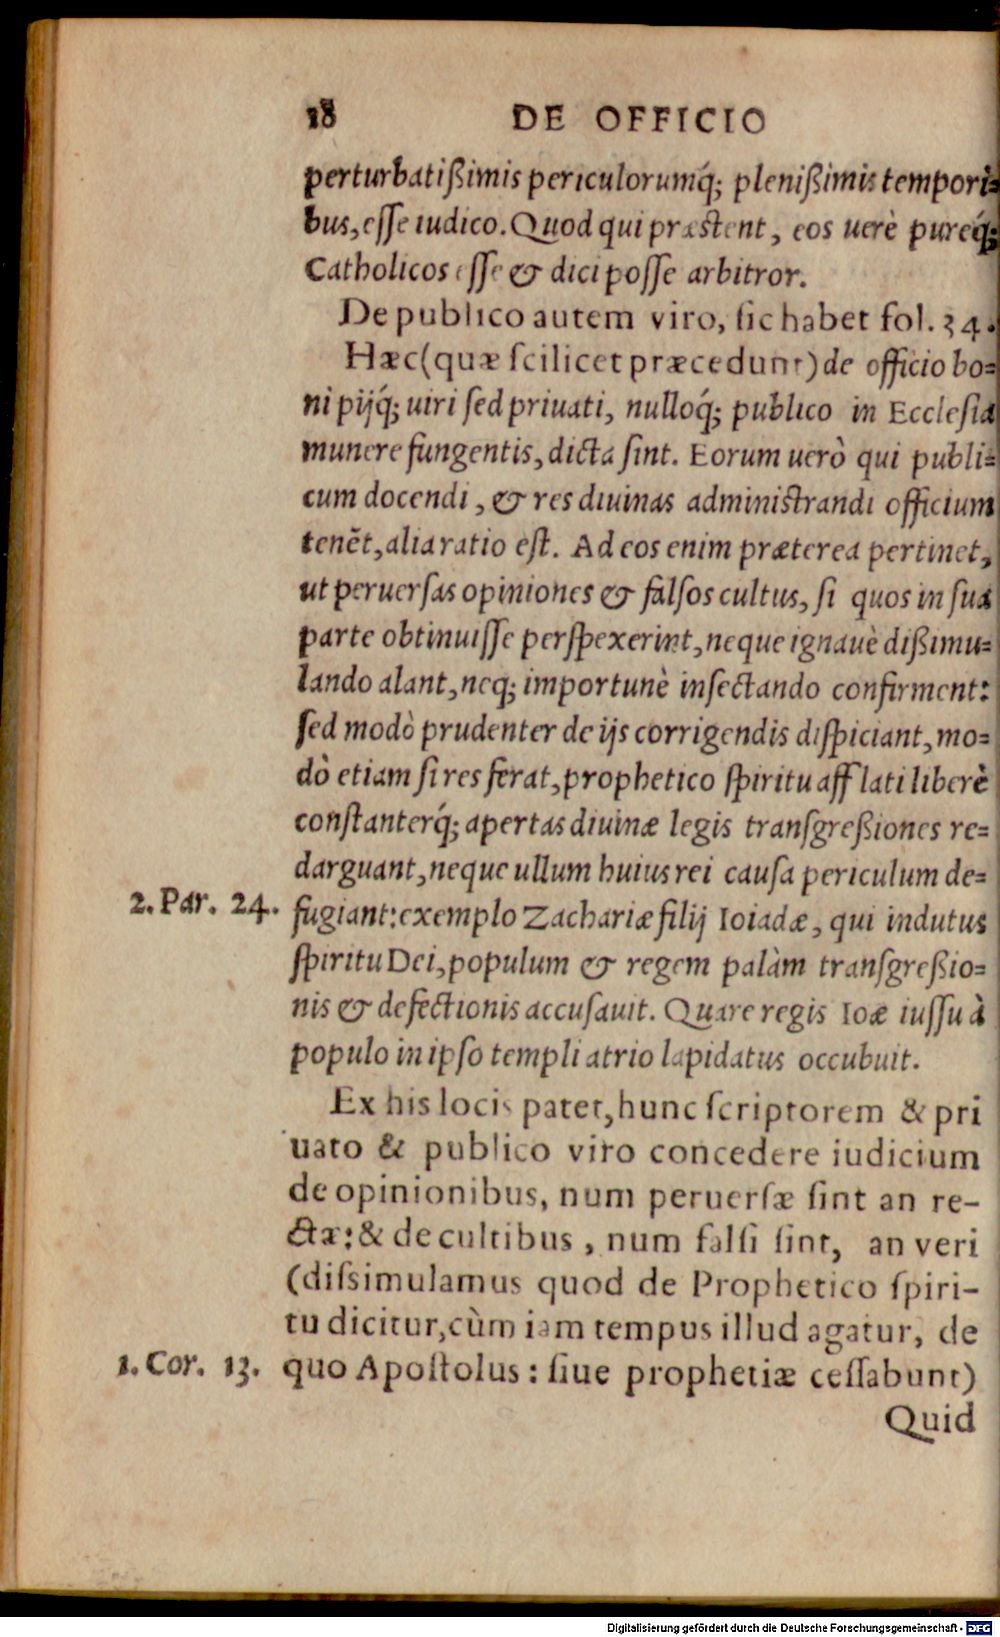 18 DE OFFICIO
perturbatißimis periculorumq́; plenißimis tempori=
bus, eſſe iudico. Quod qui præstent, eos uerè pureq́;
Catholicos eſſe & dici poſſe arbitror.
De publico autem viro, ſic habet fol. 34.
Hæc (quæ ſcilicet præcedunt) de officio bo=
ni pijq́; uiri ſed priuati, nulloq́; publico in Eccleſia
munere fungentis, dicta ſint. Eorum uerò qui publi=
cum docendi, & res diuinas administrandi officium
tenēt, alia ratio eſt. Ad eos enim præterea pertinet,
ut peruerſas opiniones & falſos cultus, ſi quos in ſua
parte obtinuiſſe perſpexerint, neque ignauè dißimu=
lando alant, neq; importunè inſectando confirment:
ſed modò prudenter de ijs corrigendis diſpiciant, mo=
dò etiam ſi res ferat, prophetico ſpiritu afflati liberè
conſtanterq́; apertas diuinæ legis tranſgreßiones re=
darguant, neque ullum huius rei cauſa periculum de=
2. Par. 24. fugiant: exemplo Zachariæ filij Ioiadæ, qui indutus
ſpiritu Dei, populum & regem palàm tranſgreßio=
nis & defectionis accuſauit. Quare regis Ioæ iuſſu à
populo in ipſo templi atrio lapidatus occubuit.
Ex his locis patet, hunc ſcriptorem & pri
uato & publico viro concedere iudicium
de opinionibus, num peruerſæ ſint an re-
ctæ: & de cultibus, num falſi ſint, an veri
(diſsimulamus quod de Prophetico ſpiri-
tu dicitur, cùm iam tempus illud agatur, de
1. Cor. 13. quo Apoſtolus: ſiue prophetiæ ceſſabunt)
Quid
Digitalisierung gefördert durch die Deutsche Forschungsgemeinschaft - DFG